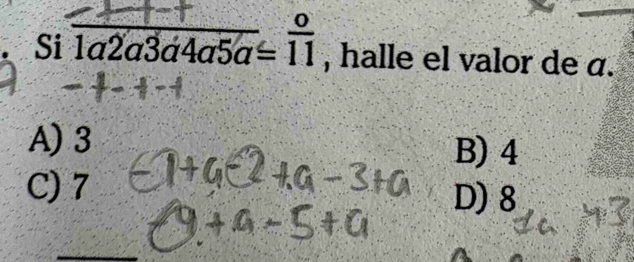 - + - + - +
. Si 1a2a3a4a5a = 11, halle el valor de a.
o
- + - + - +
A) 3
B) 4
C) 7
D) 8
-1+a-2+a-3+a
-4+a-5+a